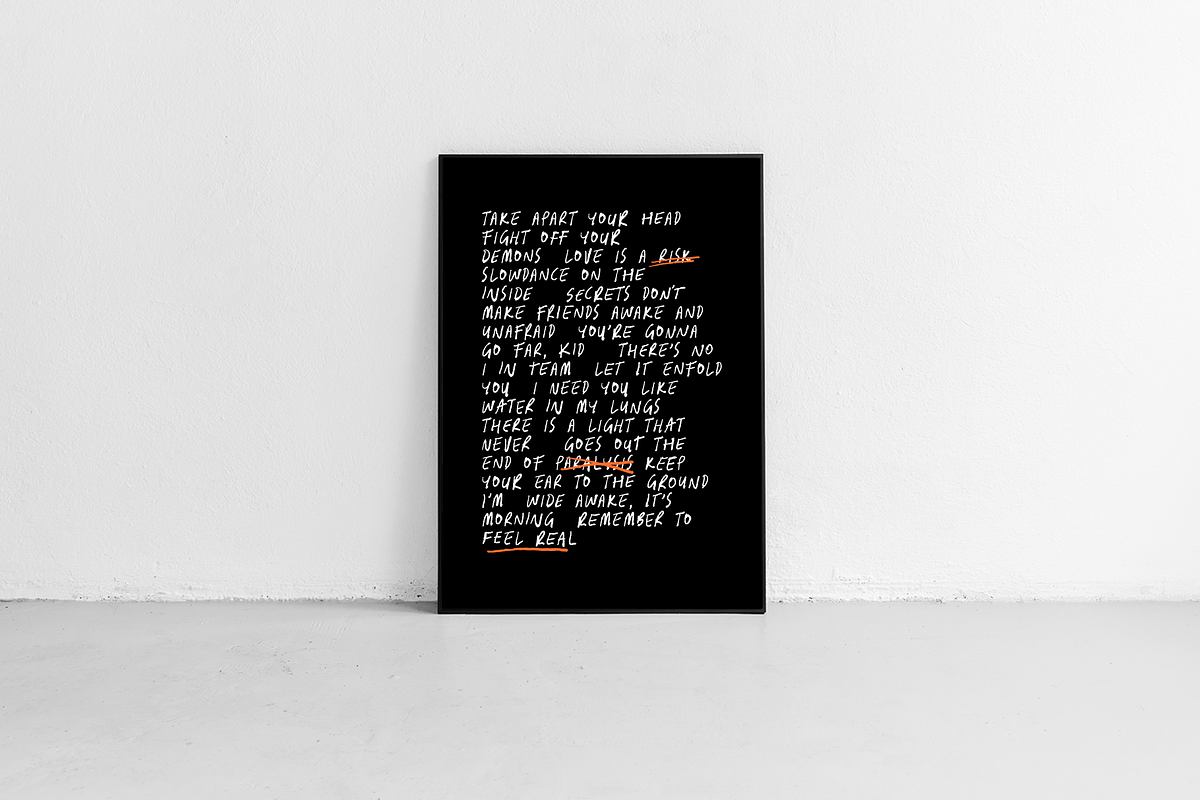 TAKE APART YOUR HEAD
FIGHT OFF YOUR
DEMONS LOVE IS A RISK
SLOWDANCE ON THE
INSIDE SECRETS DON'T
MAKE FRIENDS AWAKE AND
UNAFRAID YOU'RE GONNA
GO FAR, KID THERE'S NO
I IN TEAM LET IT ENFOLD
YOU I NEED YOU LIKE
WATER IN MY LUNGS
THERE IS A LIGHT THAT
NEVER GOES OUT THE
END OF PARALYSIS KEEP
YOUR EAR TO THE GROUND
I'M WIDE AWAKE, IT'S
MORNING REMEMBER TO
FEEL REAL